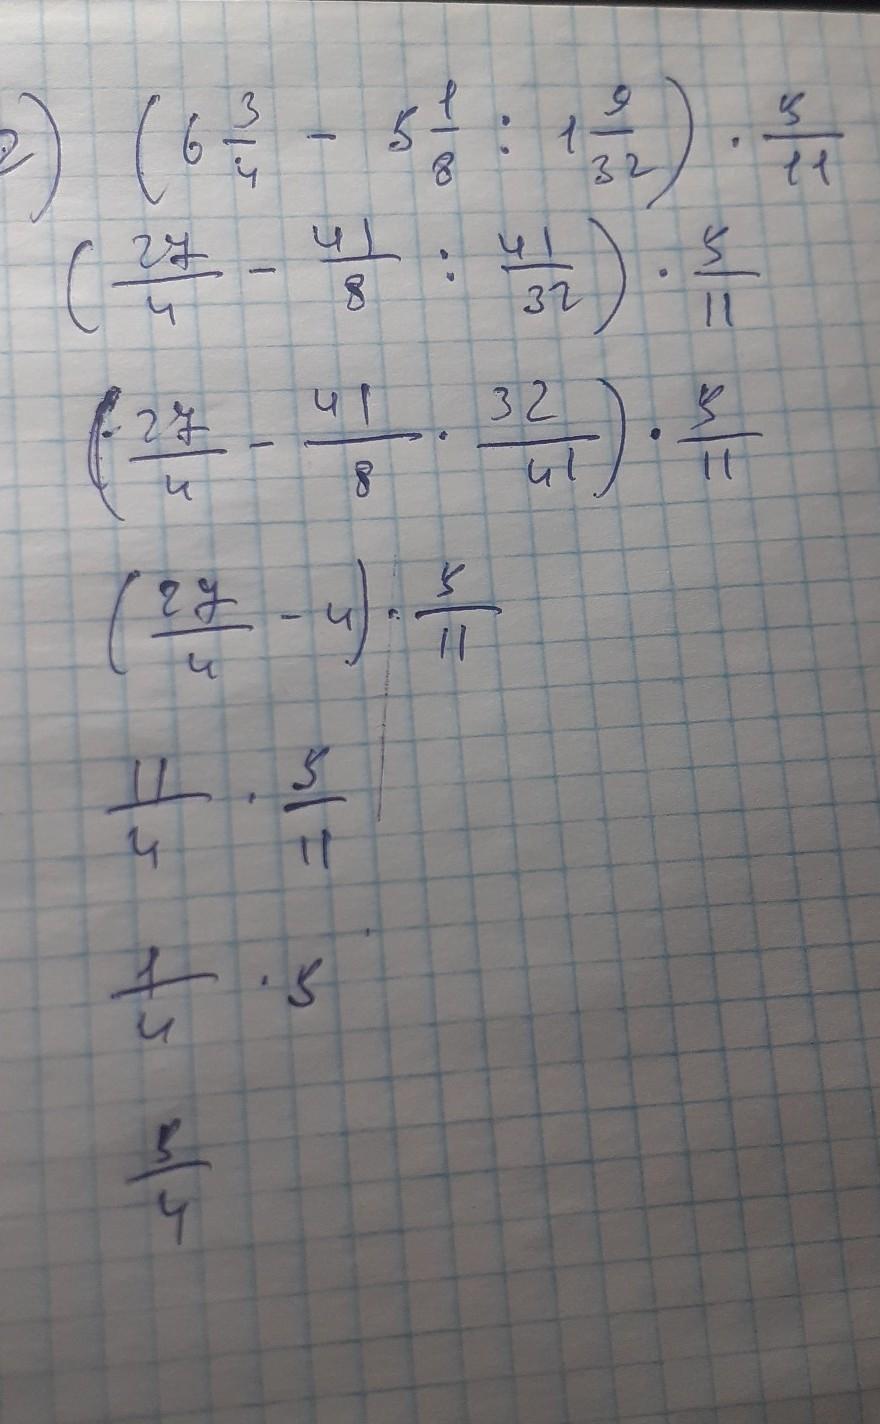 2) (6 3/4 - 5 1/8 : 1 9/32) · 5/11
(27/4 - 41/8 : 41/32) · 5/11
(27/4 - 41/8 · 32/41) · 5/11
(27/4 - 4) · 5/11
11/4 · 5/11
1/4 · 5
5/4